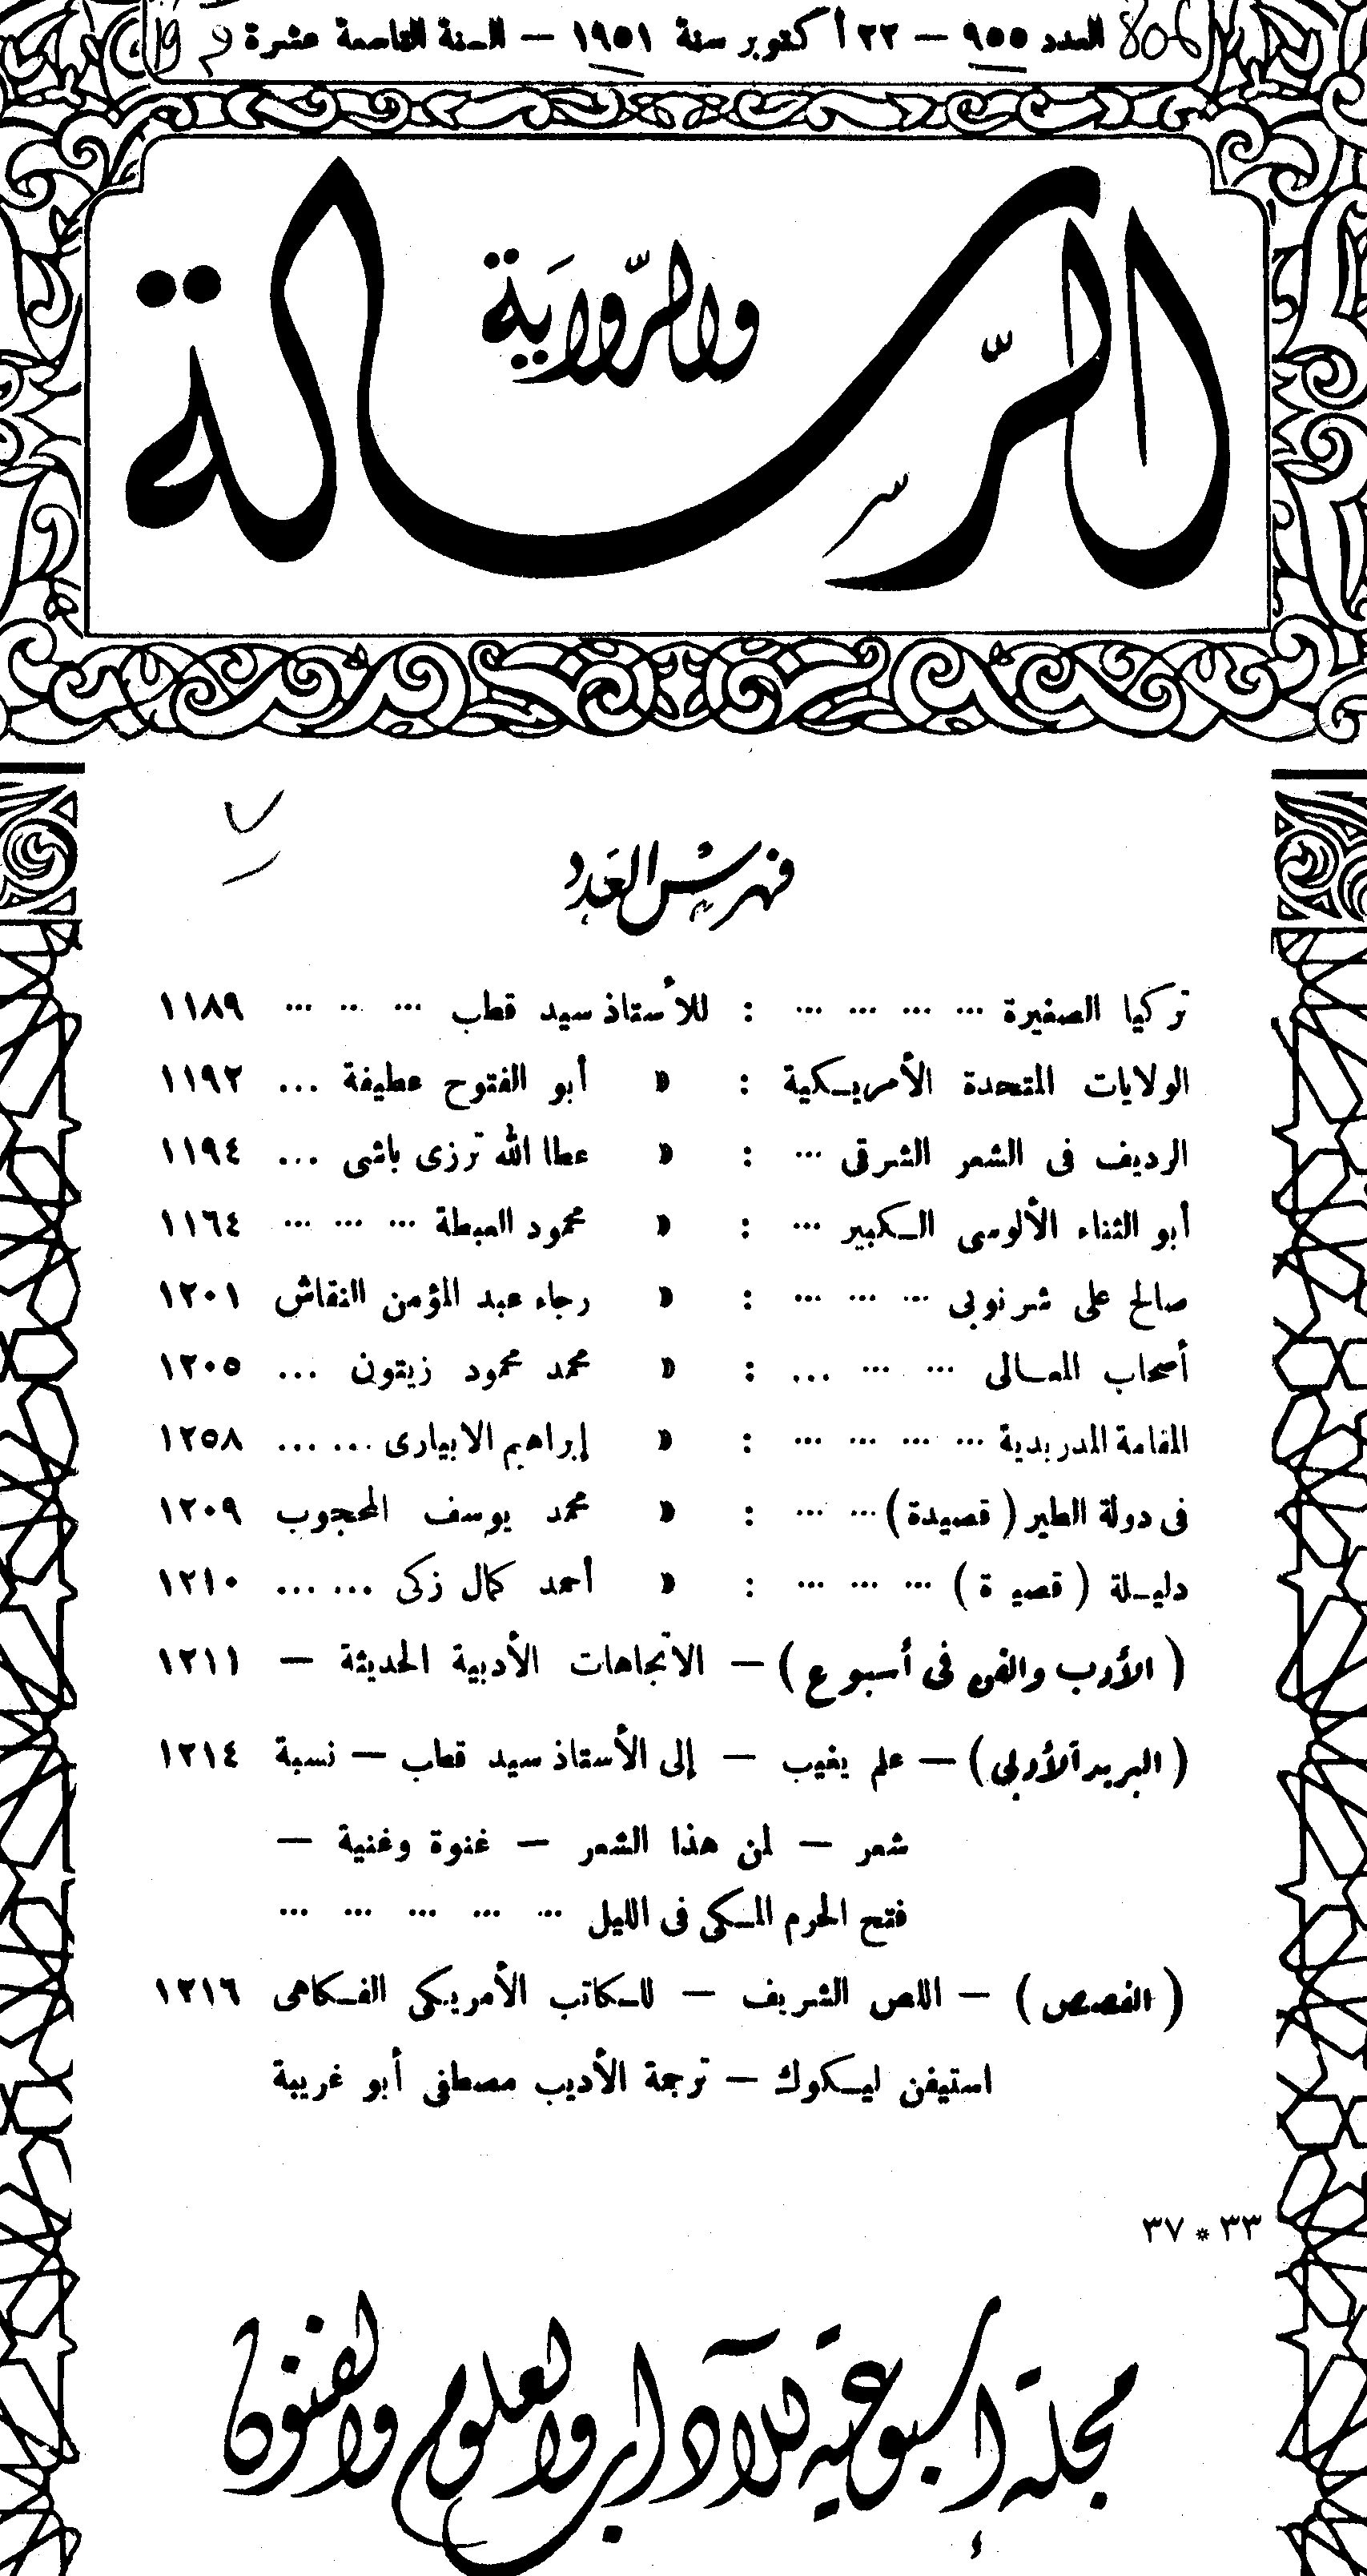 العدد ٩٥٥ — ٢٢ أكتوبر سنة ١٩٥١ — السنة التاسعة عشرة
الرسالة
والرواية
فهرس العدد
تركيا الصغيرة ... ... ... ... : للأستاذ سيد قطب ... .. ... ١١٨٩
الولايات المتحدة الأمريكية : » أبو الفتوح عطيفة ... ١١٩٢
الرديف فى الشعر الشرقى ... : » عطا الله ترزى باشى ... ١١٩٤
أبو الثناء الألوسى الكبير ... : » محمود العبطة ... ... ... ١١٦٤
صالح على شرنوبى ... ... ... : » رجاء عبد المؤمن النقاش ١٢٠١
أصحاب المعالى ... ... ... : » محمد محمود زيتون ... ١٢٠٥
المقامة الدريدية ... ... ... ... : » إبراهيم الابيارى ... ... ١٢٥٨
فى دولة الطير ( قصيدة ) ... ... : » محمد يوسف المحجوب ١٢٠٩
دليلة ( قصي ة ) ... ... ... : » أحمد كمال زكى ... ... ١٢١٠
( الأدب والفن فى أسبوع ) — الاتجاهات الأدبية الحديثة — ١٢١١
( البريد الأدبى ) — علم يغيب — إلى الأستاذ سيد قطب — نسبة ١٢١٤
شعر — لمن هذا الشعر — غنوة وغنية —
فتح الحرم المكى فى الليل ... ... ... ... ...
( القصص ) — اللص الشريف — للكاتب الأمريكى الفكاهى ١٢١٦
استيفن ليكوك — ترجمة الأديب مصطفى أبو غريبة
٣٣ * ٣٧
مجلة أسبوعية للآداب والعلوم والفنون